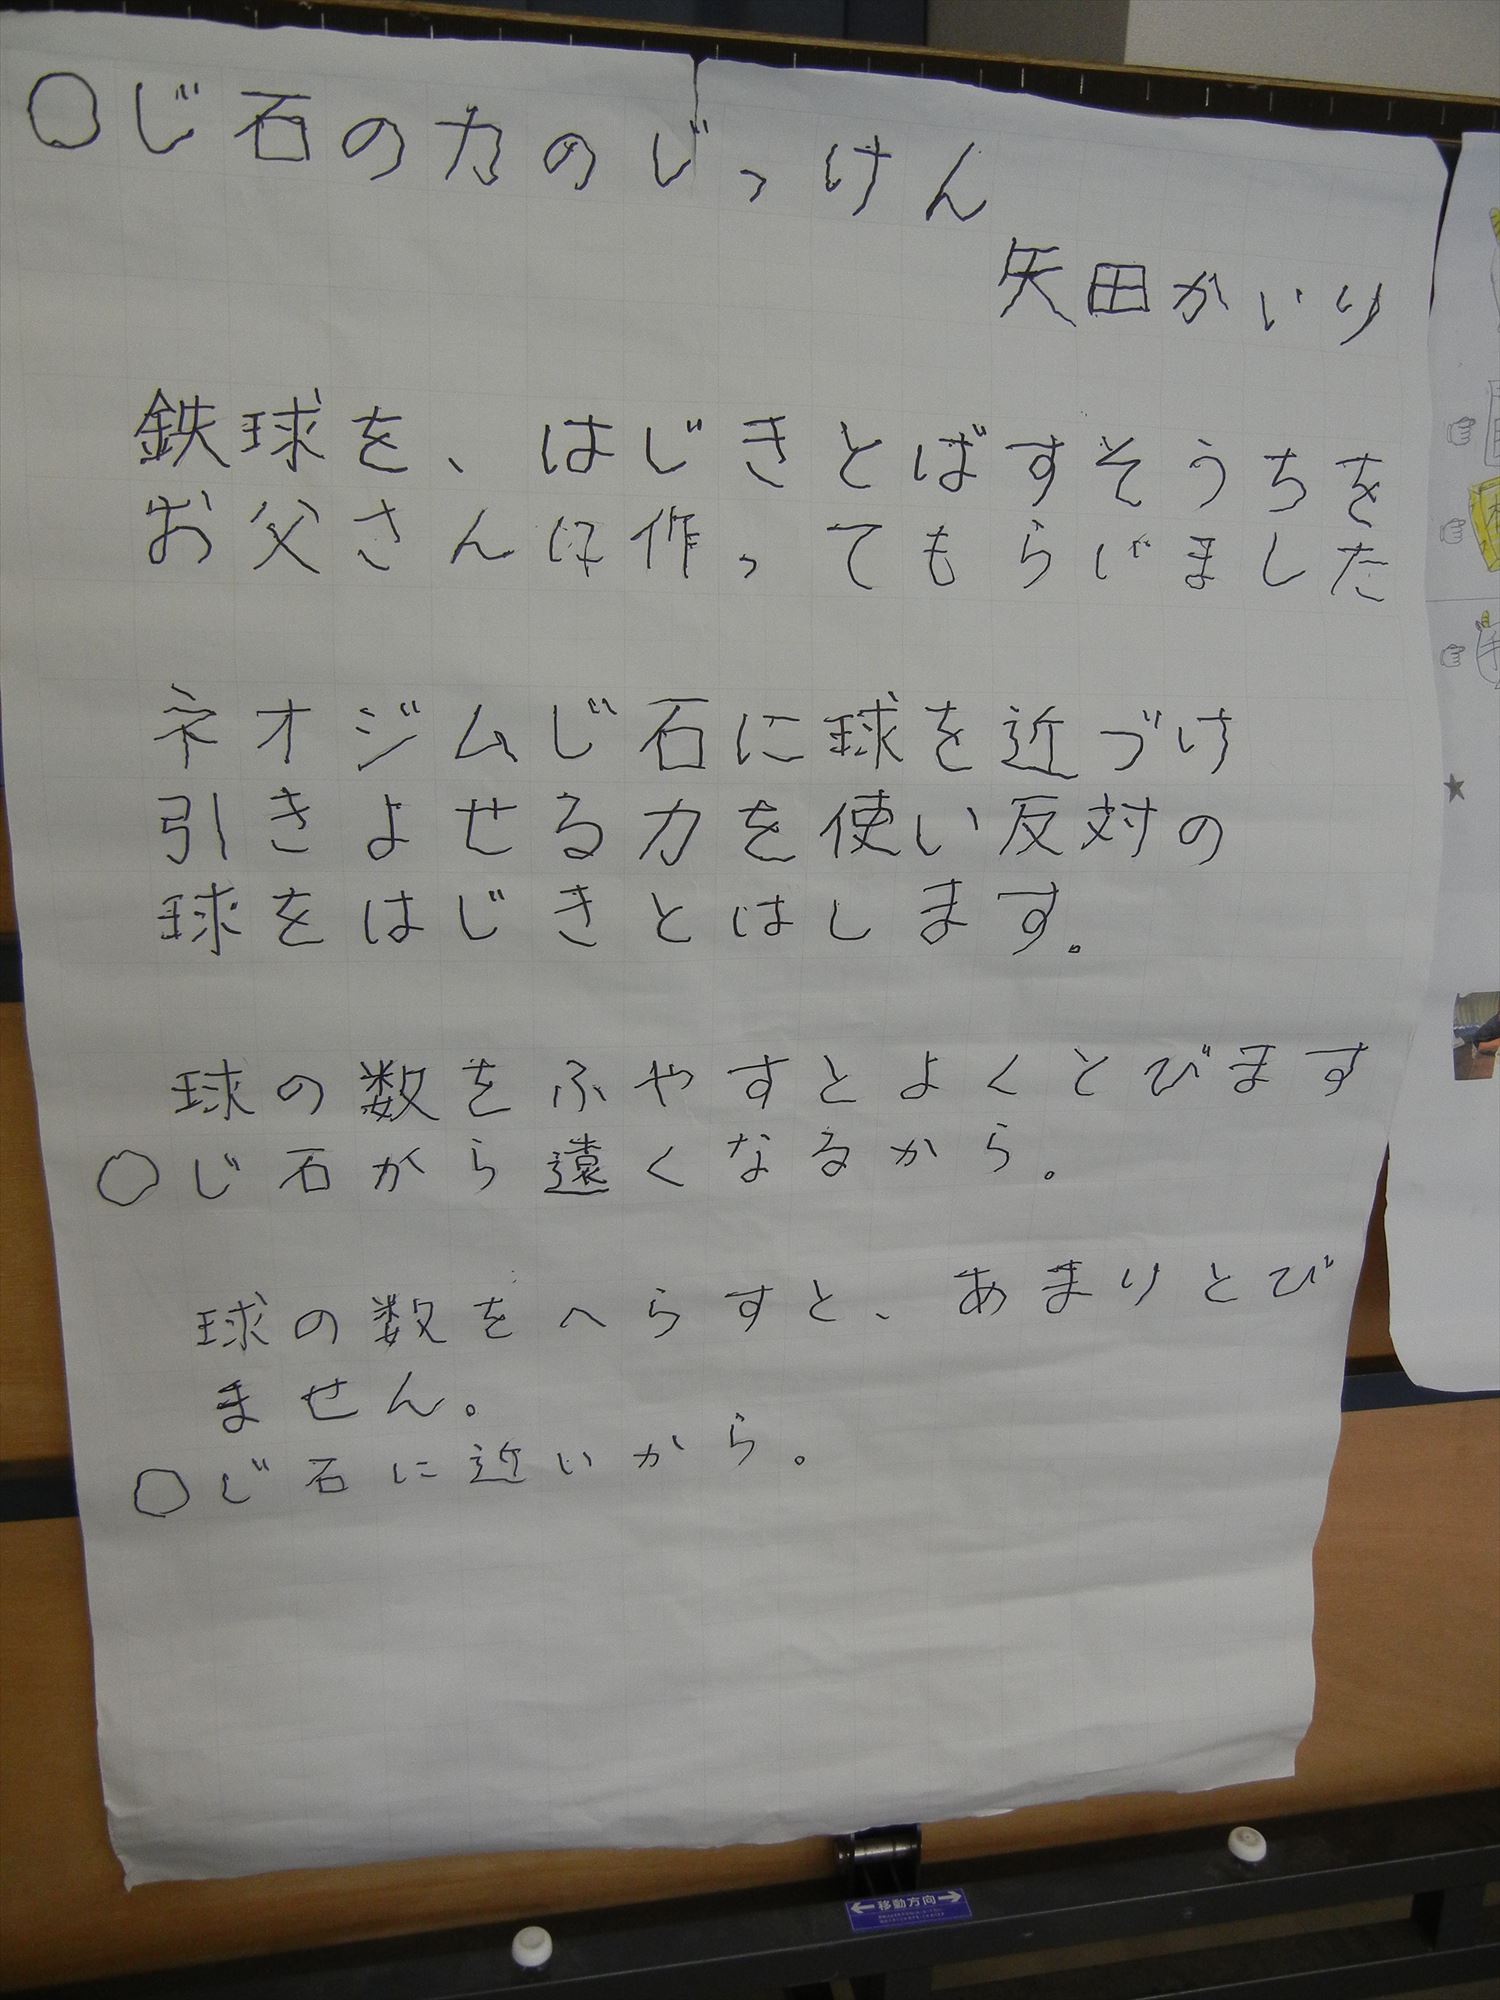 ○じ石の力のじっけん
矢田かいり
鉄球を、はじきとばすそうちを
お父さんに作ってもらいました
ネオジムじ石に球を近づけ
引きよせる力を使い反対の
球をはじきとはします。
球の数をふやすとよくとびます
○じ石から遠くなるから。
球の数をへらすと、あまりとび
ません。
○じ石に近いから。
←移動方向→